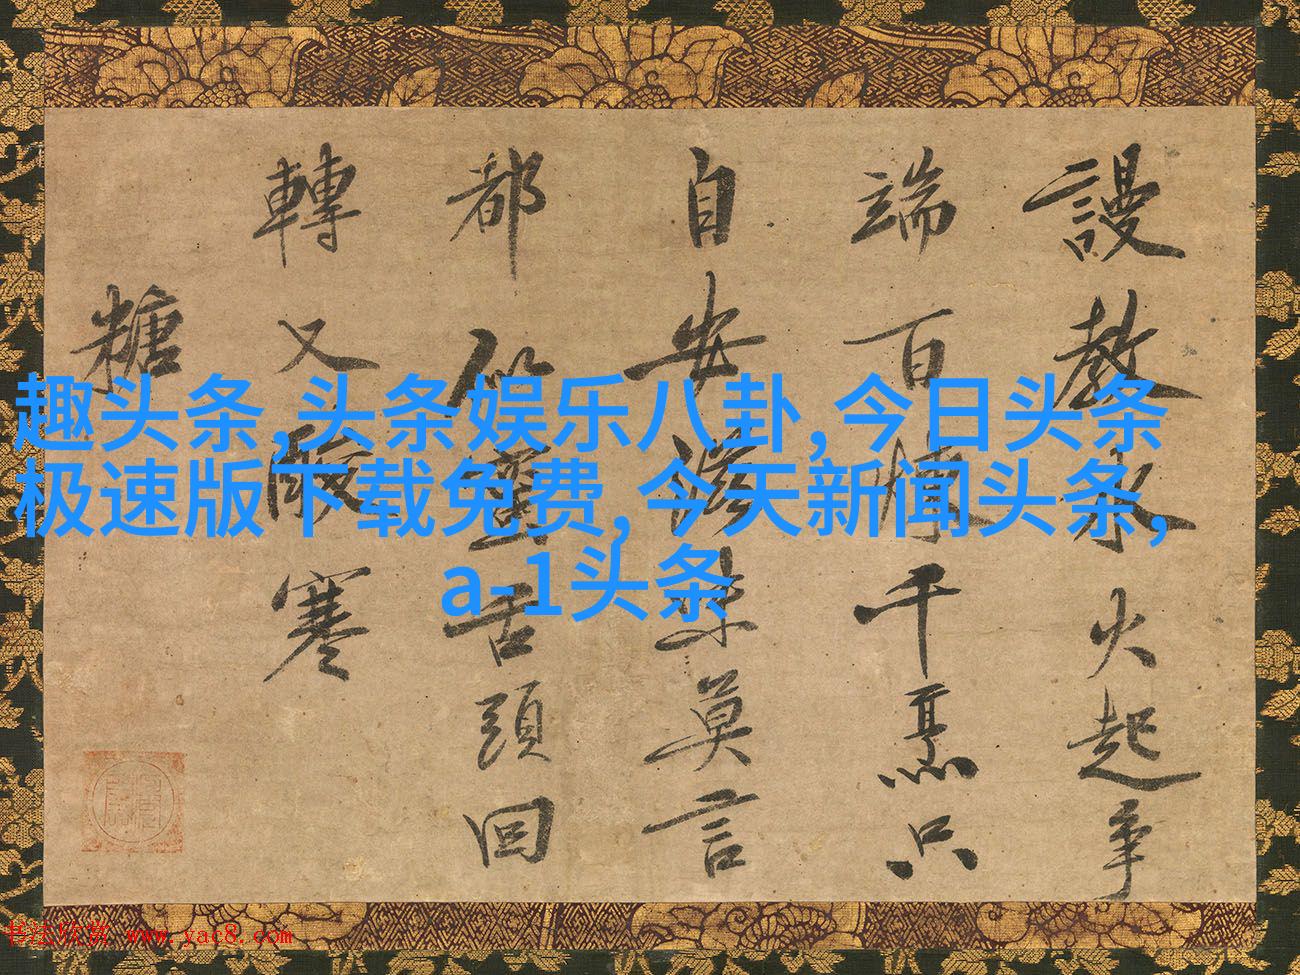 謾教水火起爭
端百煉千熏只
自安滋味莫言
都舌頭回
轉又酸寒
糖
趣头条,头条娱乐八卦,今日头条
极速版下载免费,今天新闻头条,
a-1头条
书法欣赏 www.yac8.com